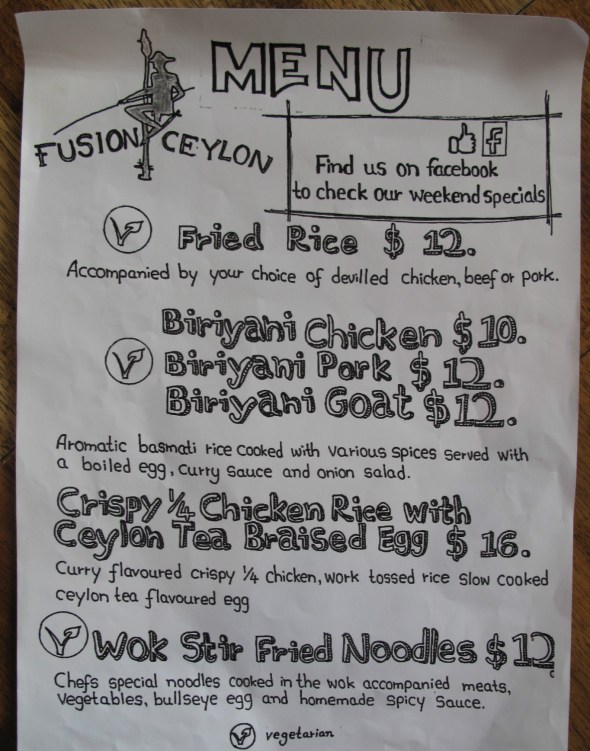 MENU
FUSION CEYLON
Find us on facebook
to check our weekend specials
Fried Rice $ 12.
Accompanied by your choice of devilled chicken, beef or pork.
Biriyani Chicken $ 10.
Biriyani Pork $ 12.
Biriyani Goat $ 12.
Aromatic basmati rice cooked with various spices served with
a boiled egg, curry sauce and onion salad.
Crispy ¼ Chicken Rice with
Ceylon Tea Braised Egg $ 16.
Curry flavoured crispy ¼ chicken, work tossed rice slow cooked
ceylon tea flavoured egg
Wok Stir Fried Noodles $ 12
Chefs special noodles cooked in the wok accompanied meats,
vegetables, bullseye egg and homemade spicy sauce.
vegetarian